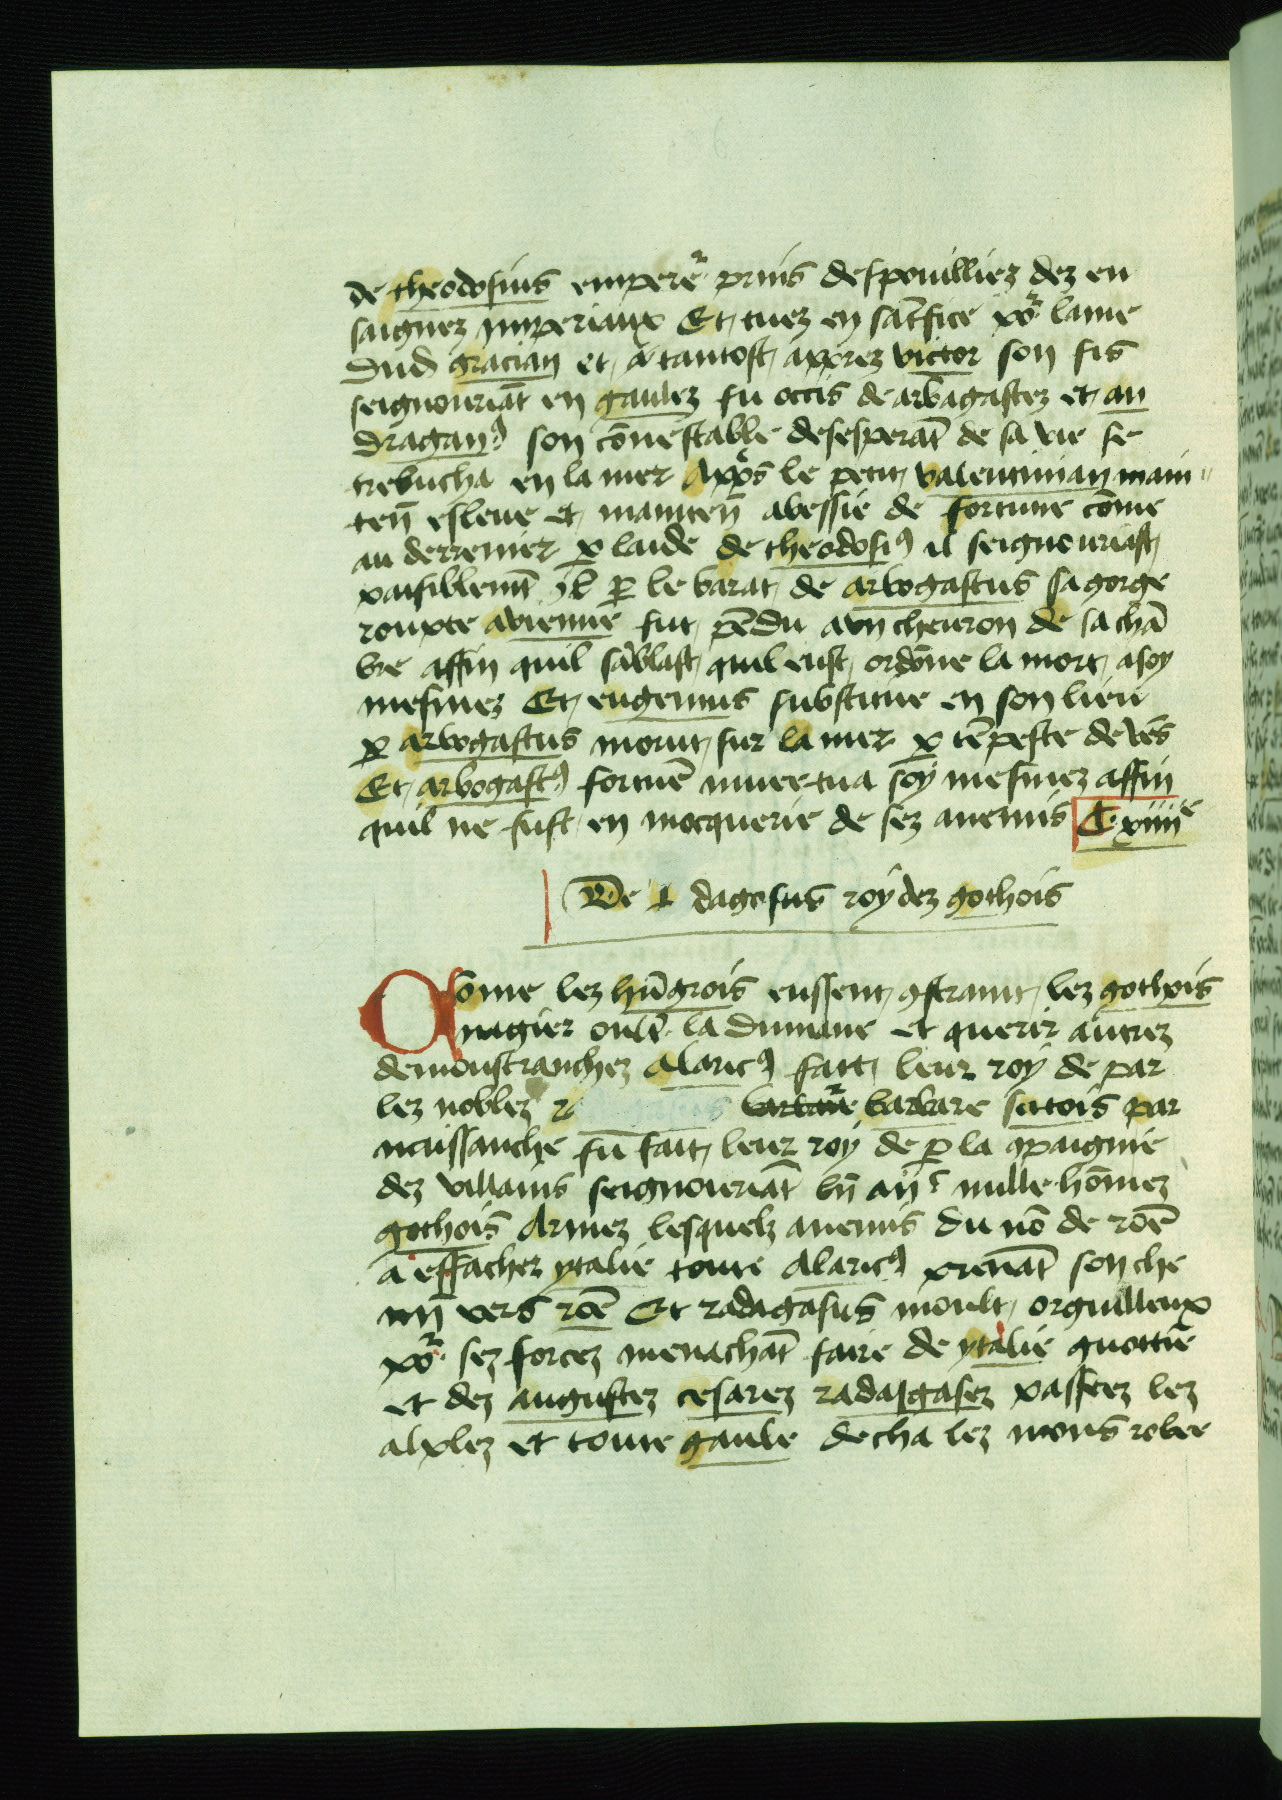 de theodosius emperẽ prins despouilliez dez en
saignez imperiaux Et tuez en sacrifice po᷑ lame
dud gracian et a tantost aprez victor son fis
seignouriãt en gaulez fu occis de arbagastez et an
dragan⁹ son cõnestable desesperãt de sa vie se
trebucha en la mer Apꝛes le petit valentinian main
teñ esleue et mainteñ abessie de fortune cõme
au derrenier ꝑ laide de theodosi⁹ il seignouriast
paisiblemt̃ ꝑ le barat de arbogastus sa gorge
roupte a vienne fut pẽdu a vn cheuron de sa chã
bre affin quil sãblast quil eust ordõne la mort a soy
mesmez Et eugenius substitue en son lieu
ꝑ arbogastus morut sur la mer ꝑ tẽpeste de vẽs
Et arbogast⁹ fortunẽ muee tua soy mesmez affin
quil ne fust en mocquerie de sez anemis C. xiiiiᵉ
De dagasus roy dez gothois
Cõme lez hũgrois eussent ꝯstraint lez gothois
nagier oult̃ la dunune et querir autrez
demoustranchez alaric⁹ fait leur roy de par
lez noblez r barbare sitois par
naissanche fũ fait leur roy de ꝑ la ꝯpaignie
dez villains seignouriãt mille hõmez
gothois Armez lesquelz anemis du nõ de rõe
a effacher ytalie toute Alaric⁹ prenãt son che
mĩ vers rõe Et radagasus moult orguilleux
po᷑ sez forcez menachãt faire de ytalie guottie
et dez augustez cesarez radagasez passeez lez
alplez et toute gaule decha lez mons robee